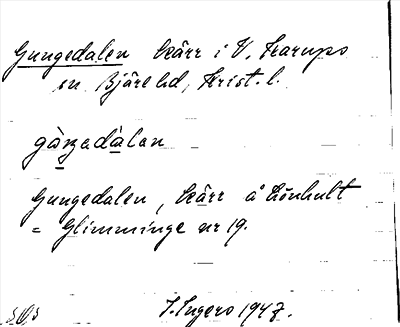 Gungedalen kärr i V. Karups
sn Bjäre hd, Krist. l.
gàŋedàlan
Gungedalen, kärr å Lönhult
= Glimminge nr 19.
I. Ingers 1947.